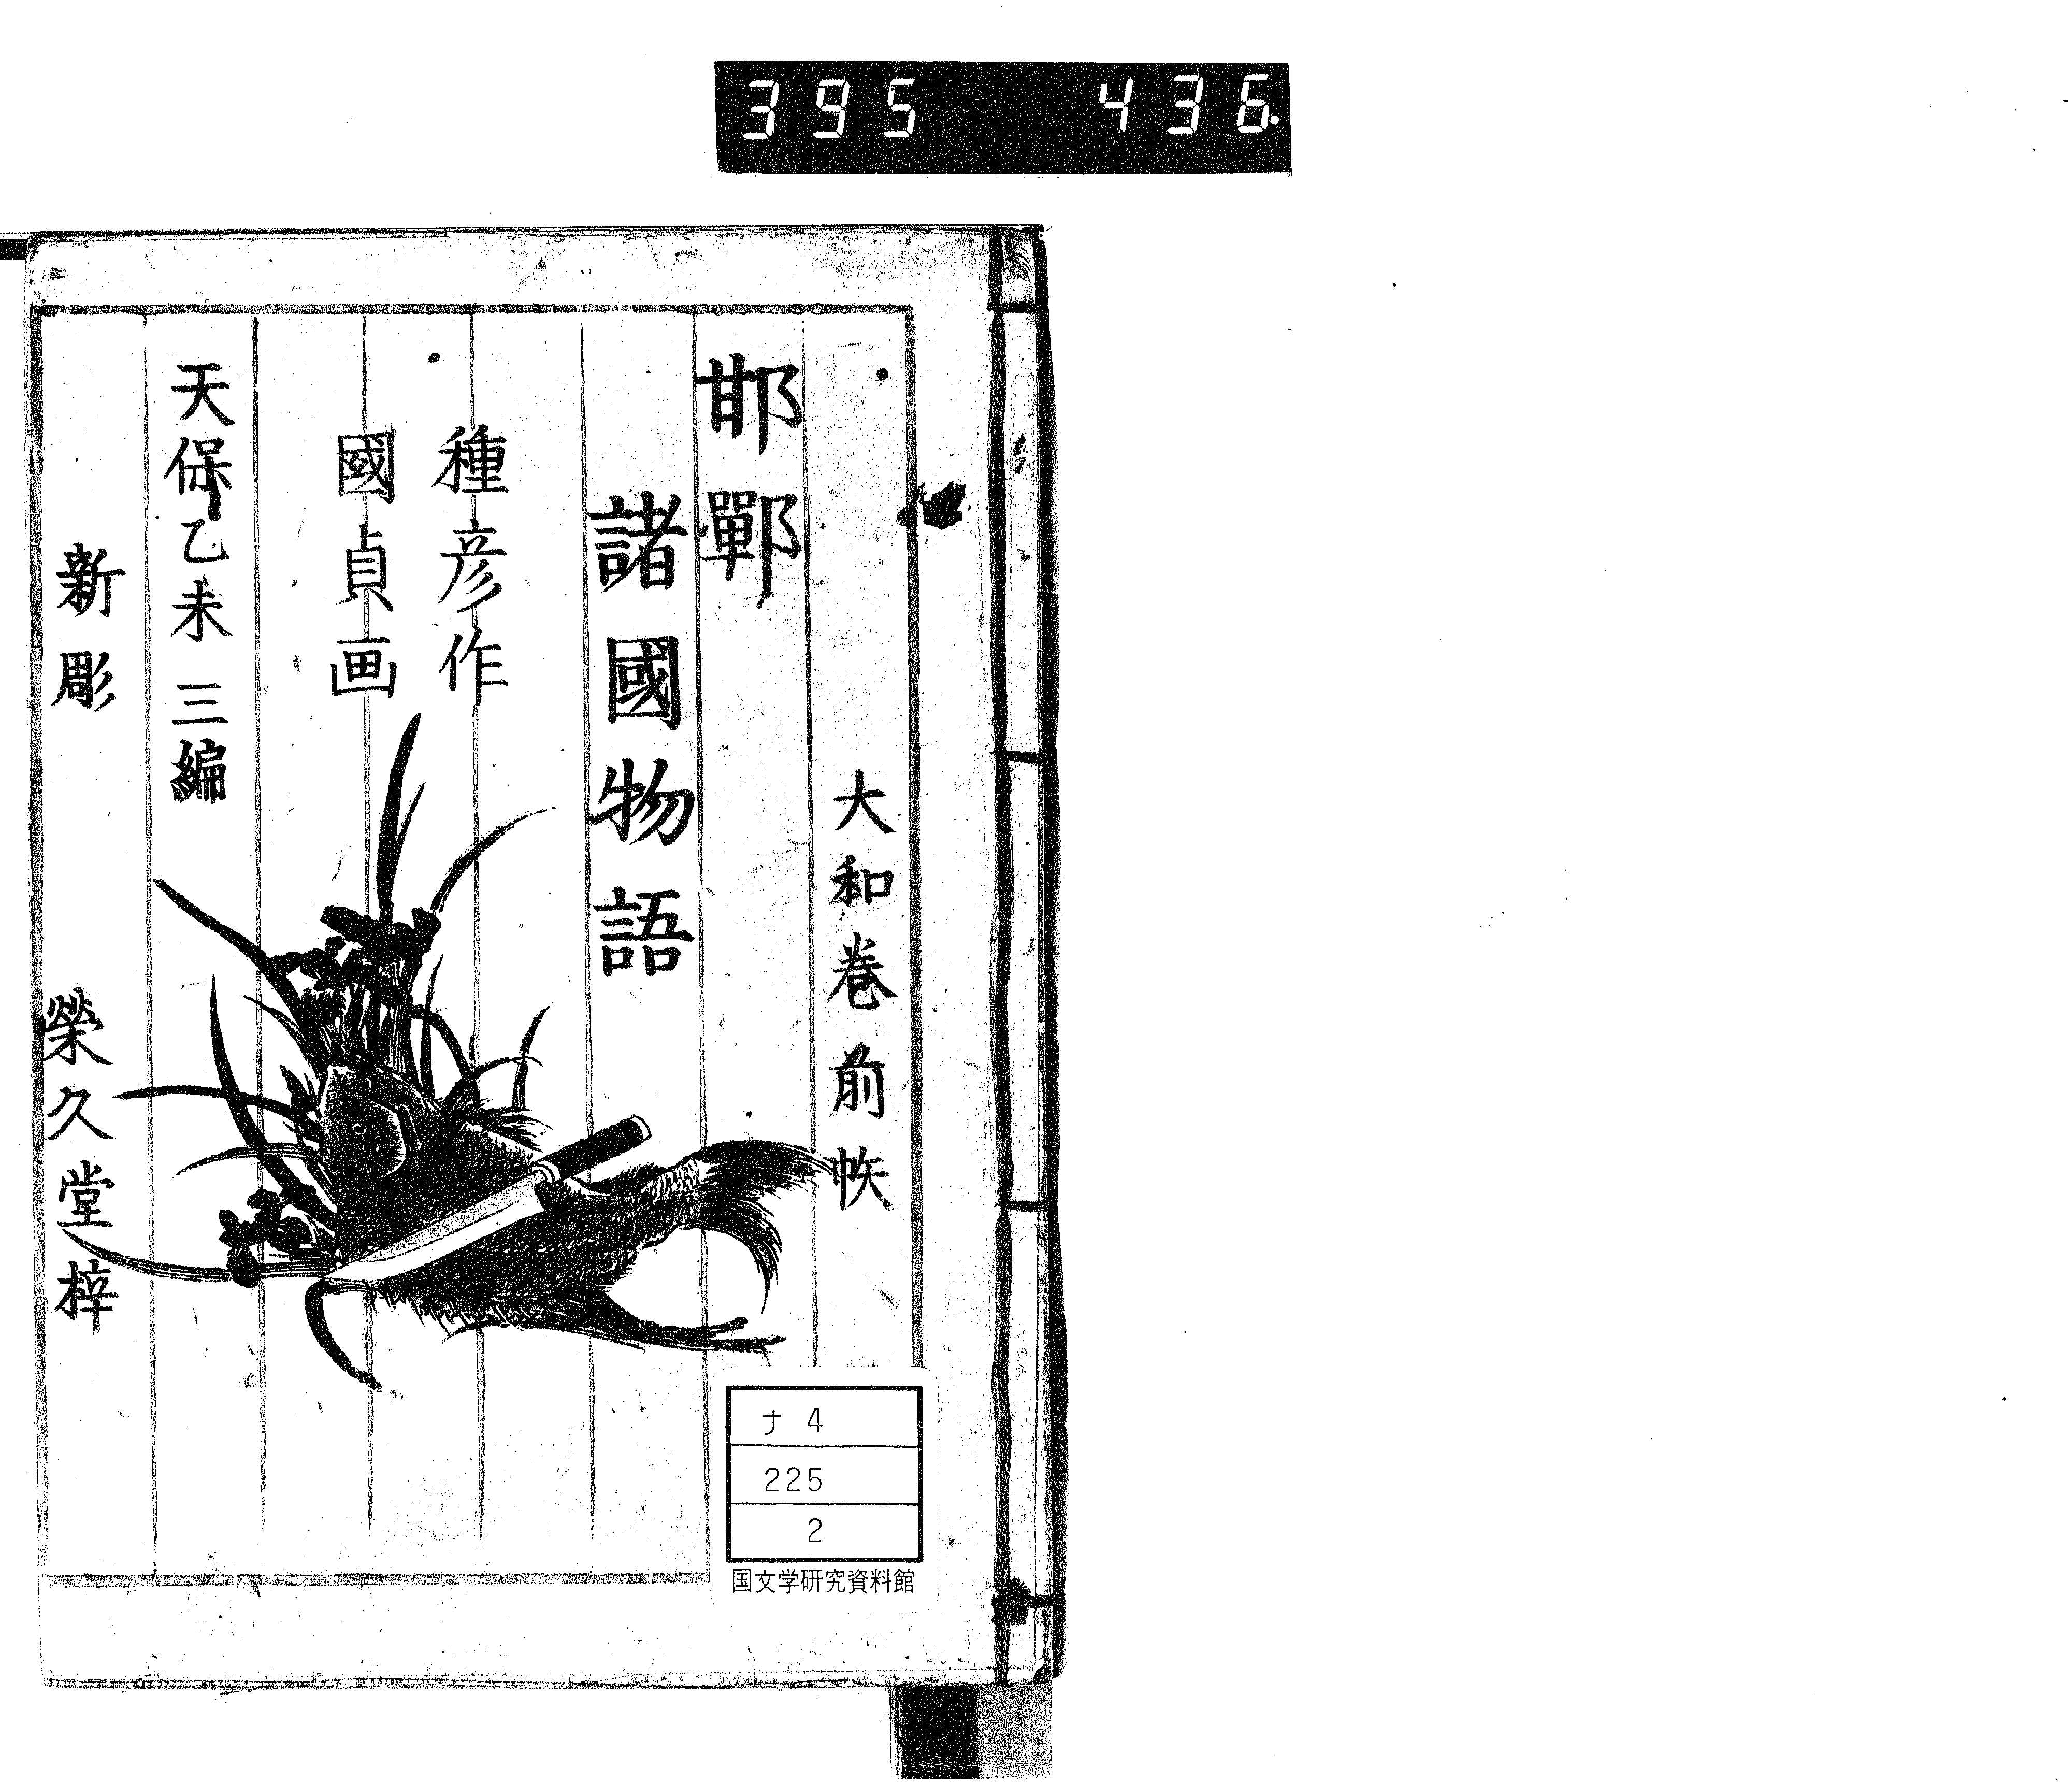 395 436.
大和巻前帙
邯鄲
諸國物語
種彦作
國貞画
天保乙未 三編
新彫 榮久堂梓
ナ 4
225
2
国文学研究資料館